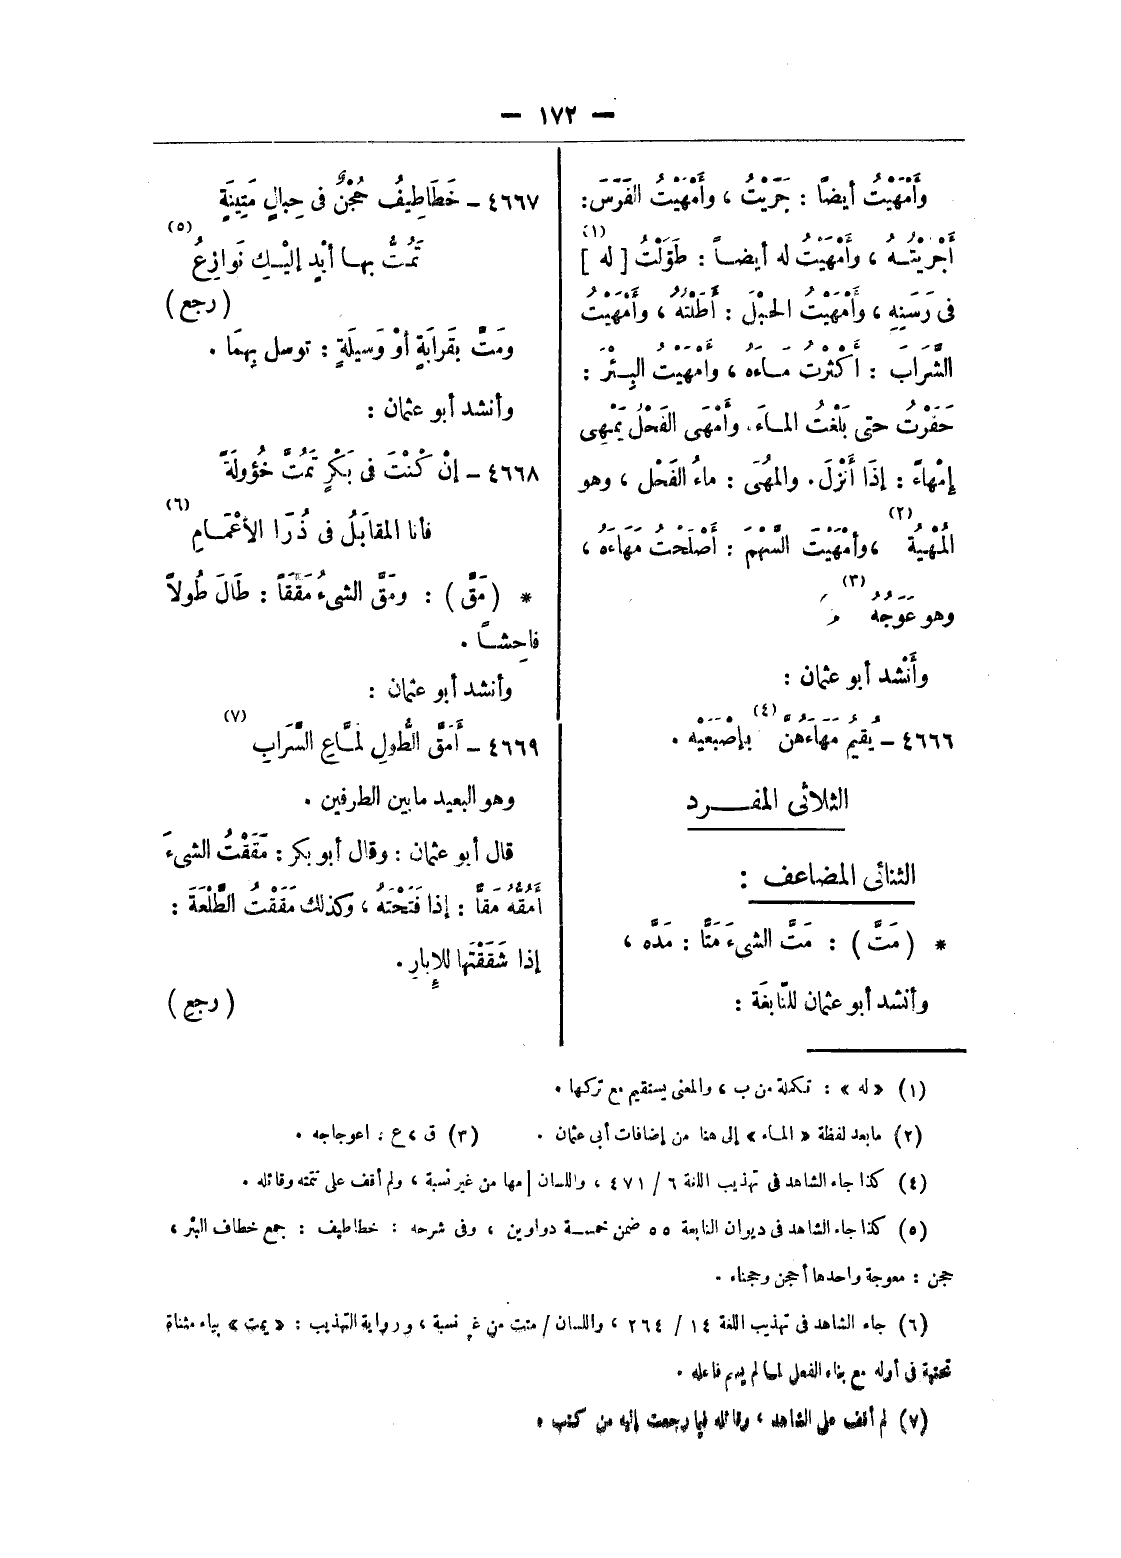 — ١٧٢ —
وأَمْهَيْتُ أيضًا : جَرَيْتُ ، وأَمْهَيتُ الفَرَسَ :
أَجْرَيْتُـهُ ، وأَمْهَيْتُ له أيضـاً : طَوَّلْتُ [ له ] (١)
فى رَسَنِهِ ، وأَمْهَيْتُ الحَبْلَ : أَطَلْتُهُ ، وأَمْهَيْتُ
الشَّرَابَ : أَكْثَرْتُ مَـاءَه ، وأَمْهَيتُ البِـئْرَ :
حَفَرْتُ حتى بَلَغْتُ المـاءَ. وأَمْهَى الفَحْلُ يُمْهِى
إِمْهاءً : إذَا أَنْزَلَ. والمُهَى : ماءُ الفَحْلِ ، وهو
المُهْيَةُ (٢) ، وأَمْهَيْتُ السَّهْمَ : أَصْلَحْتُ مَهَاءَه ،
وهو عَوَجُهُ (٣)
وأَنْشد أبو عثمان :
٤٦٦٦ – يُقِيمُ مَهَاءَهُنَّ (٤) بإصْبَعَيْه .
الثلاثى المفـــرد
الثنائى المضاعف :
* ( مَتَّ ) : مَتَّ الشىءَ مَتًّا : مَدَّه ،
وأنشد أبو عثمان للنَّابغَة :
٤٦٦٧ – خَطَاطِيفُ حُجْنٌ فى حِبالٍ مَتِينَةٍ
تَمُتُّ بهـا أَيْدٍ إلَيْـكِ نَوازِعُ (٥)
( رجع )
ومَتَّ بقَرابَةٍ أوْ وَسيلَةٍ : توسل بِهِمَا .
وأنشد أبو عثمان :
٤٦٦٨ – إنْ كُنْتَ فى بَكْرٍ تَمُتُّ خُؤولَةً
فأنا المقابَلُ فى ذُرَا الأعْمَـامِ (٦)
* ( مَقَّ ) : ومَقَّ الشىءُ مَقَقاً : طَالَ طُولاً
فاحِشـاً .
وأنشد أبو عثمان :
٤٦٦٩ – أَمَقَّ الطُّولِ لمَّاعِ السَّرَابِ (٧)
وهو البعيد مابين الطرفين .
قال أبو عثمان : وقال أبو بكر : مَقَقْتُ الشىءَ
أَمُقُّهُ مَقًّا : إذا فَتَحْتَه ، وكذلك مَقَقْتُ الطَّلْعَةَ :
إذا شَقَقْتَها للإبارِ .
( رجع )
(١) « له » : تكملة من ب ، والمعنى يستقيم مع تركها .
(٢) مابعد لفظة « المـاء » إلى هنا من إضافات أبى عثمان . (٣) ق ، ع : اعوجاجه .
(٤) كذا جاء الشاهد فى تهذيب اللغة ٦ / ٤٧١ ، واللسان / مها من غير نسبة ، ولم أقف على تتمته وقائله .
(٥) كذا جاء الشاهد فى ديوان النابغة ٥٥ ضمن خمسـة دواوين ، وفى شرحه : خطاطيف : جمع خطاف البئر ،
حجن : معوجة واحدها أحجن وحجناء .
(٦) جاء الشاهد فى تهذيب اللغة ١٤ / ٢٦٤ ، واللسان / متت من غير نسبة ، ورواية التهذيب : « يمت » بياء مثناة
تحتية فى أوله مع بناء الفعل لمـا لم يسم فاعله .
(٧) لم أقف على الشاهد ، وقائله فيما رجعت إليه من كتب .